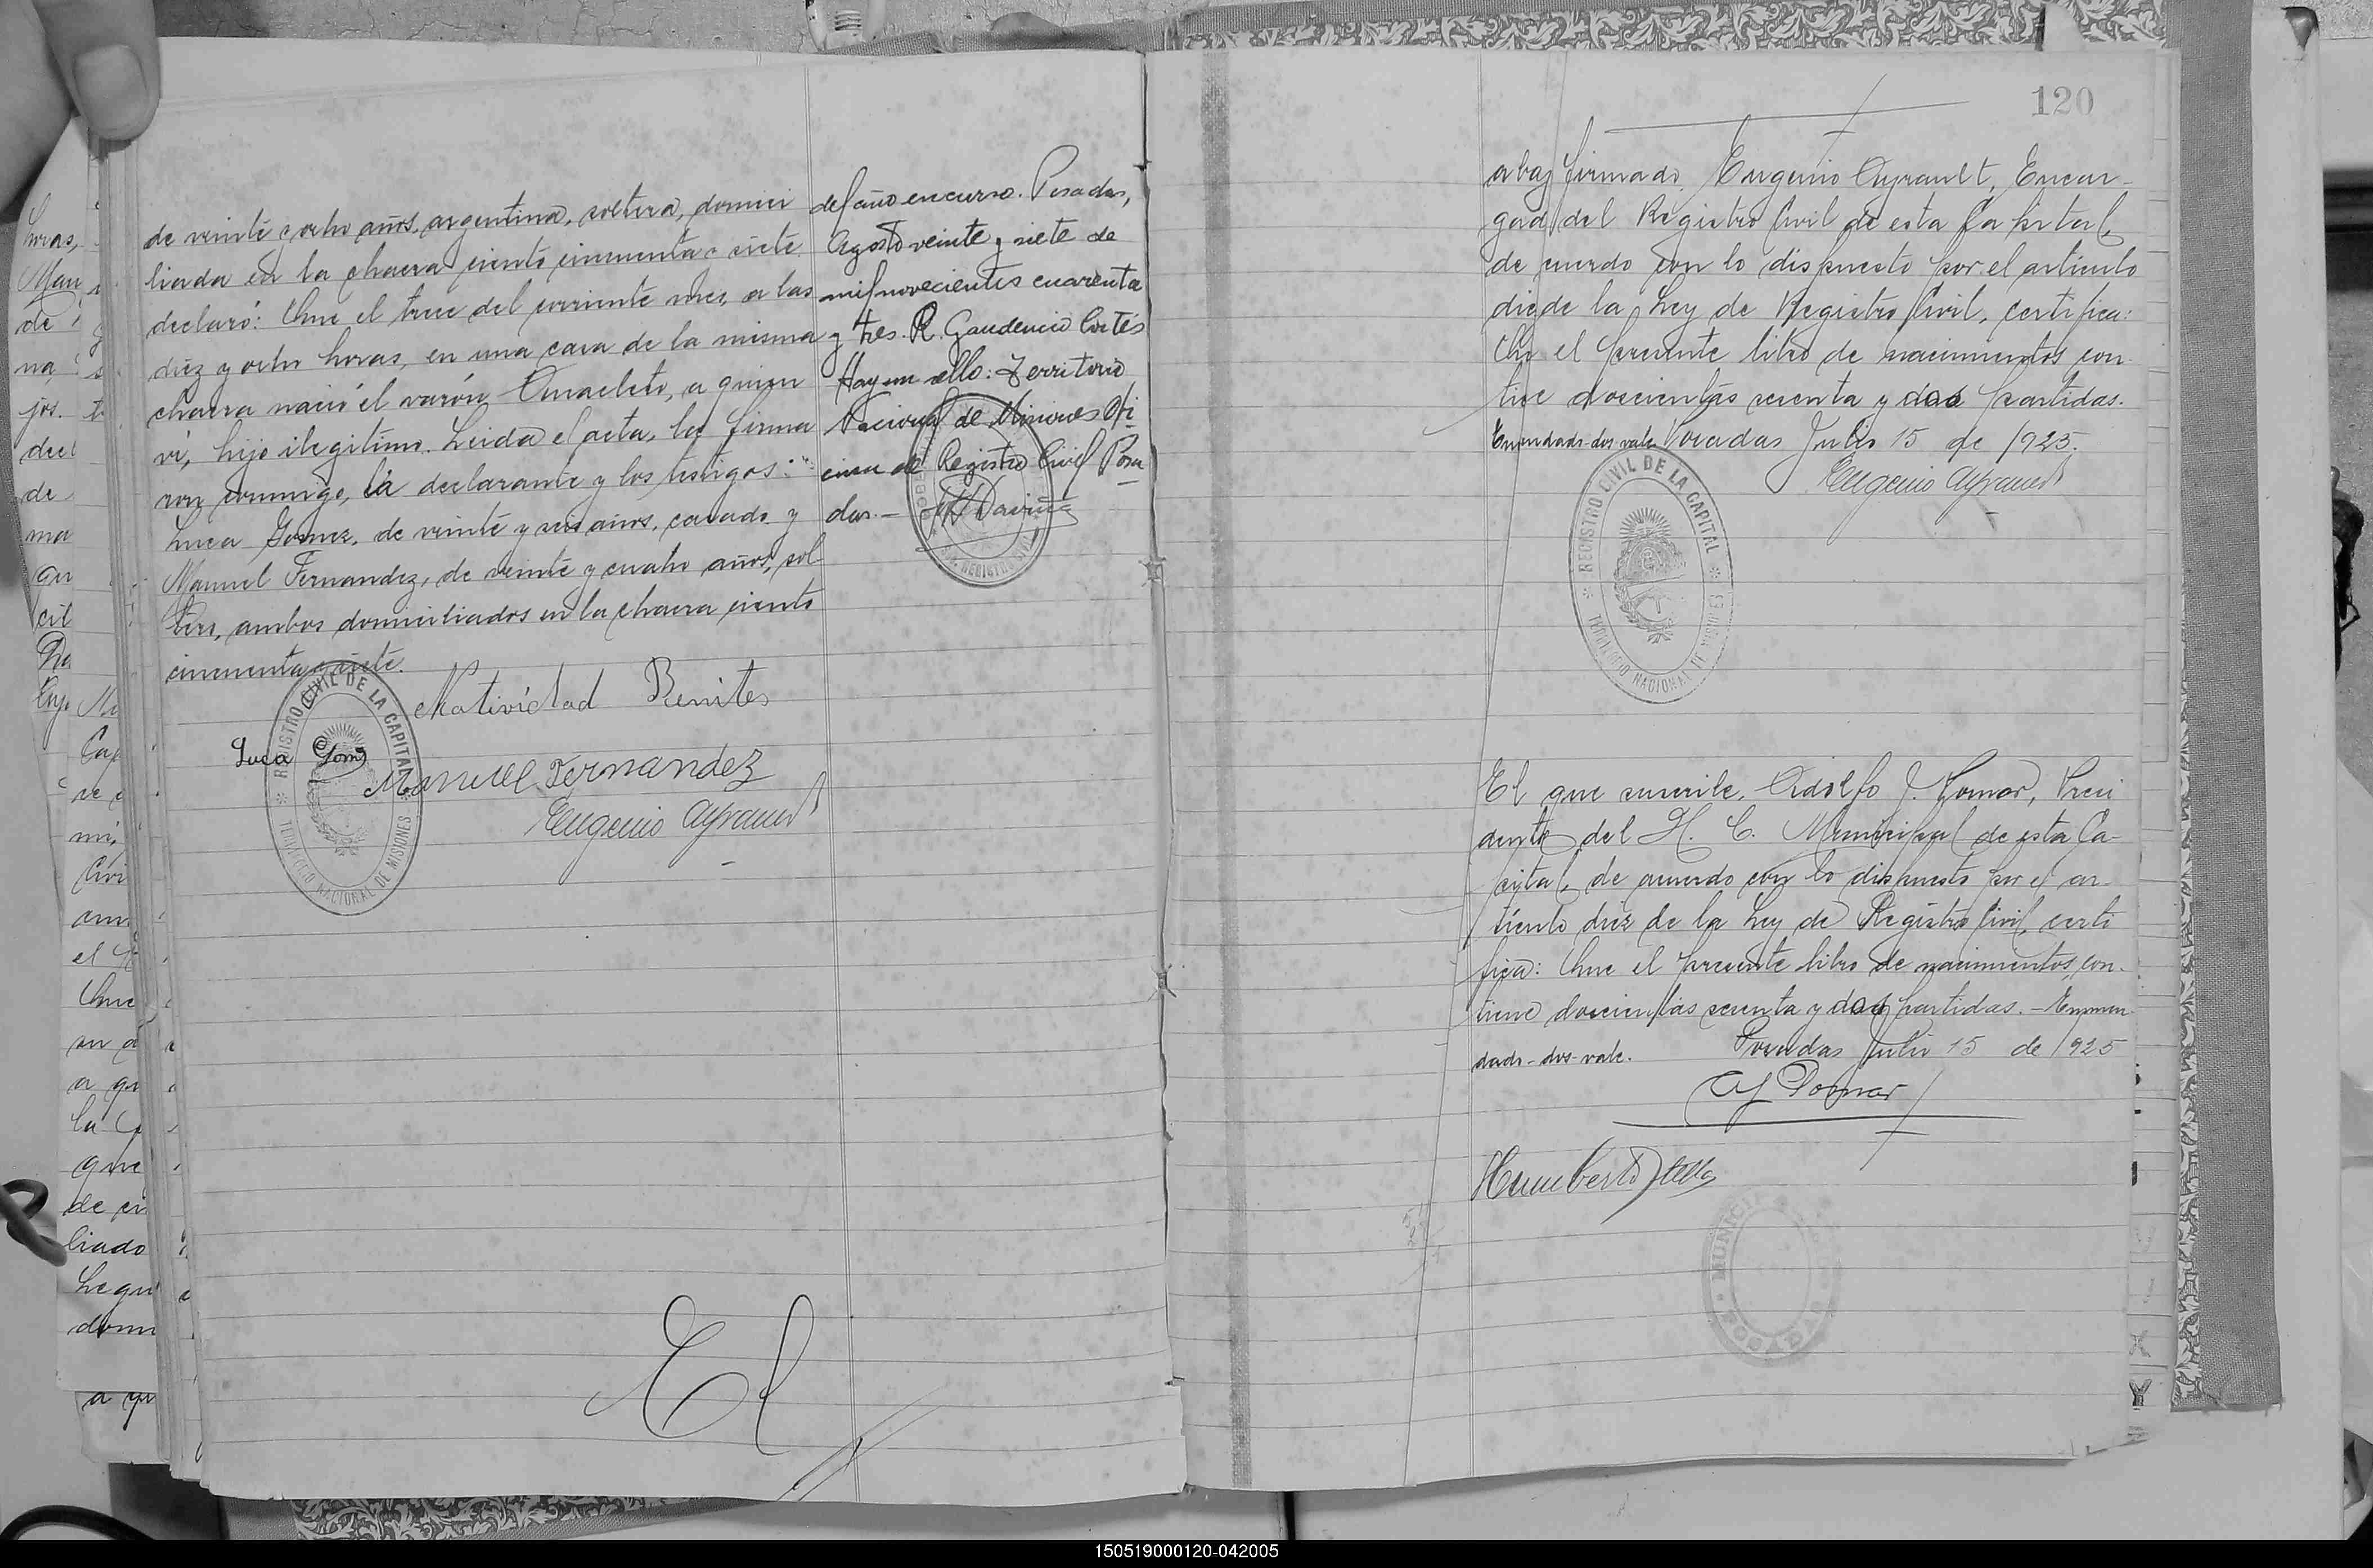 de veinte y ocho años, argentina, soltera, domici
liada en la chacra ciento cincuenta y siete
declaró: Que el trece del corriente mes, a las
diez y ocho horas, en una casa de la misma
chacra nació el varón Anacleto, a quien
vi, hijo ilegitimo. Leida el acta, la firma
ron conmigo, la declarante y los testigos:
Luca Gomez, de veinte y seis años, casado y
Manuel Fernandez, de veinte y cuatro años, sol
tero, ambos domiciliados en la chacra ciento
cincuenta y siete.
Natividad Benites
Luca Gomz
Manuel Fernandez
Eugenio Ayrault
REGISTRO CIVIL DE LA CAPITAL
TERRITORIO NACIONAL DE MISIONES
El
del año en curso. Posadas,
Agosto veinte y siete de
mil novecientos cuarenta
y tres. R. Gaudencio Cortés
Hay un sello: Territorio
Nacional de Misiones Ofi
cina de Registro Civil Posa
das.—
120
abajo firmado, Eugenio Ayrault, Encar-
gado del Registro Civil de esta Capital,
de acuerdo con lo dispuesto por el articulo
diez de la Ley de Registro Civil, certifica:
Que el presente libro de nacimientos con-
tiene doscientas sesenta y dos partidas.
Enmendado-dos-vale Posadas Julio 15 de 1925.
Eugenio Ayrault
REGISTRO CIVIL DE LA CAPITAL
TERRITORIO NACIONAL DE MISIONES
El que suscribe, Adolfo J. Pomar, Presi
dente del H. C. Municipal de esta Ca-
pital, de acuerdo con lo dispuesto por el ar-
tículo diez de la Ley de Registro Civil, certi
fica: Que el presente libro de nacimientos, con-
tiene doscientas sesenta y dos partidas.- Enmen
dado-dos-vale. Posadas Julio 15 de 1925
AJ Pomar
Humberto
150519000120-042005